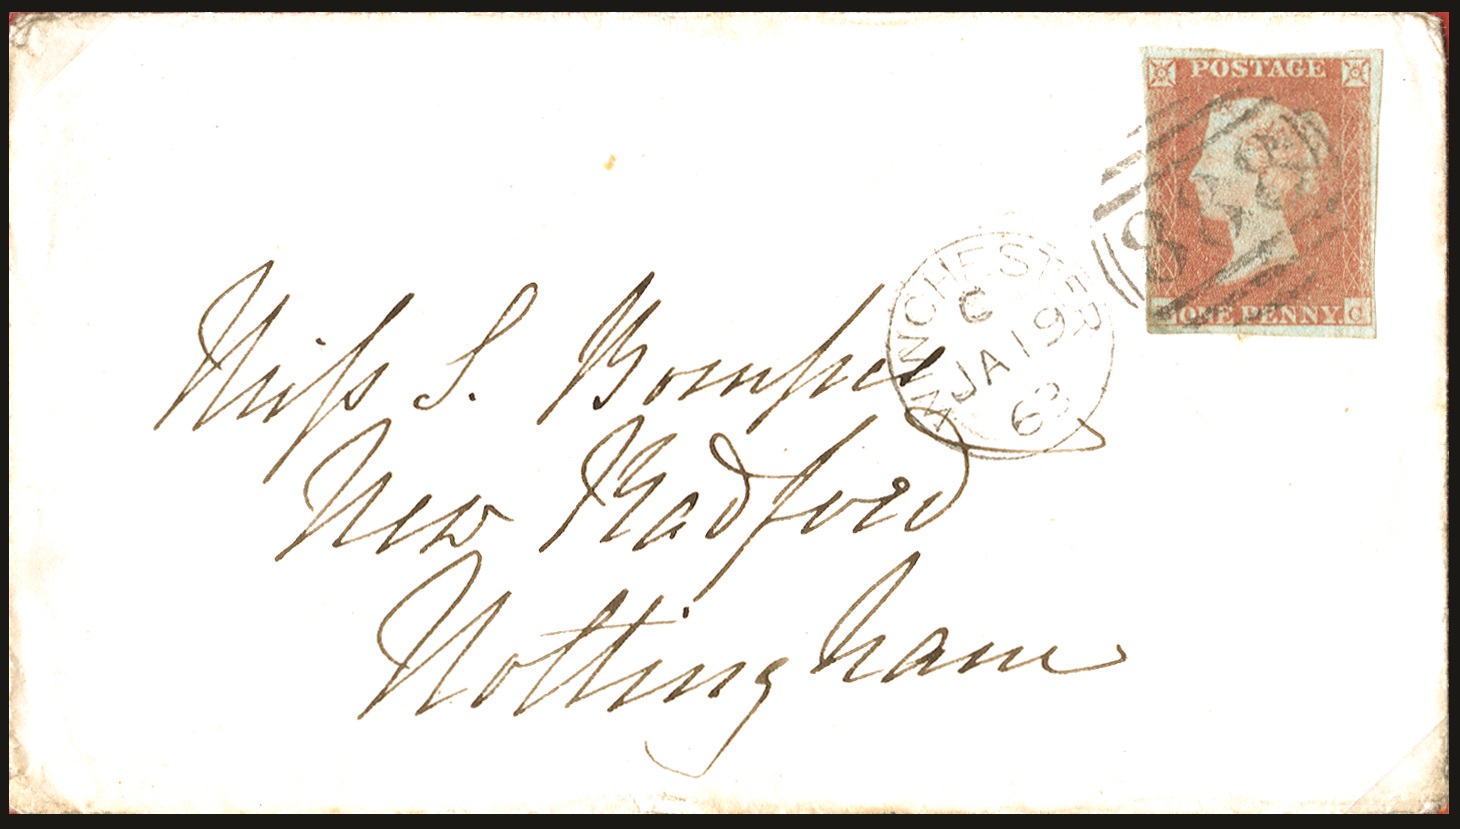 POSTAGE
ONE PENNY C
WINCHESTER
C
JA 19
63
Miss S. Bompas
New Radford
Nottingham